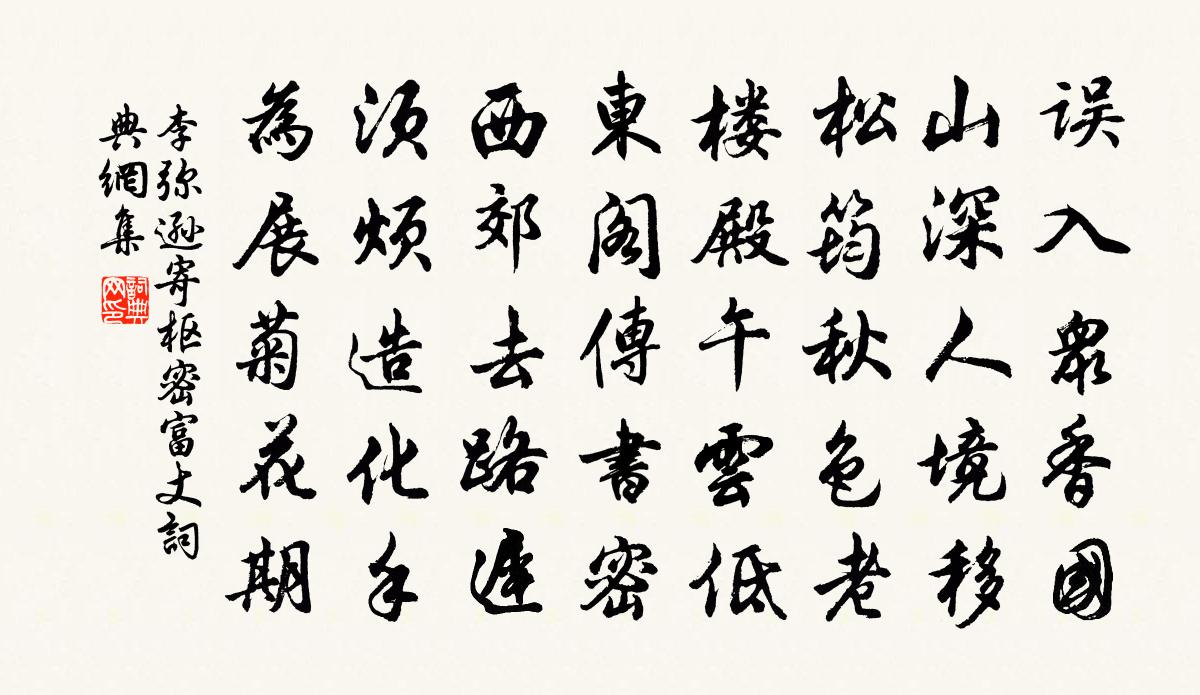 误入衆香國
山深人境移
松筠秋色老
楼殿午雲低
東阁傳書密
西郊去路遲
须烦造化手
為展菊花期
李弥遜寄枢密富丈詞
典網集
詞典网印